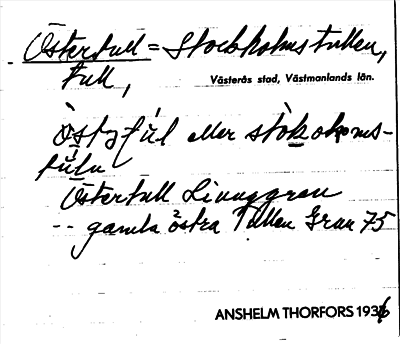 Östertull = Stockholmstullen,
tull,
Västerås stad, Västmanlands län.
eller
Östertull Linnggren
-- gamla östra Tullen Gran 75
ANSHELM THORFORS 1936